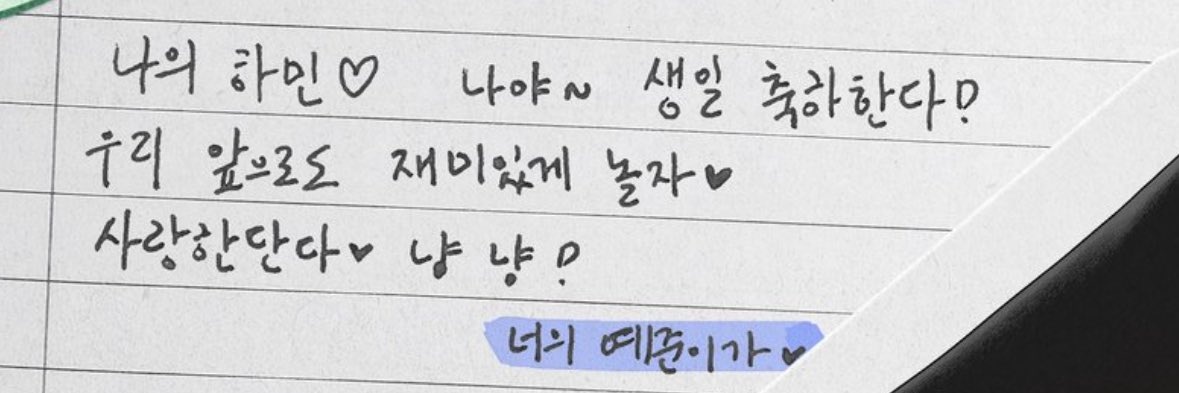 나의 하민♡ 나야~ 생일 축하한다!
우리 앞으로도 재미있게 놀자♥
사랑한단다♥ 냥 냥!
너의 예준이가♥